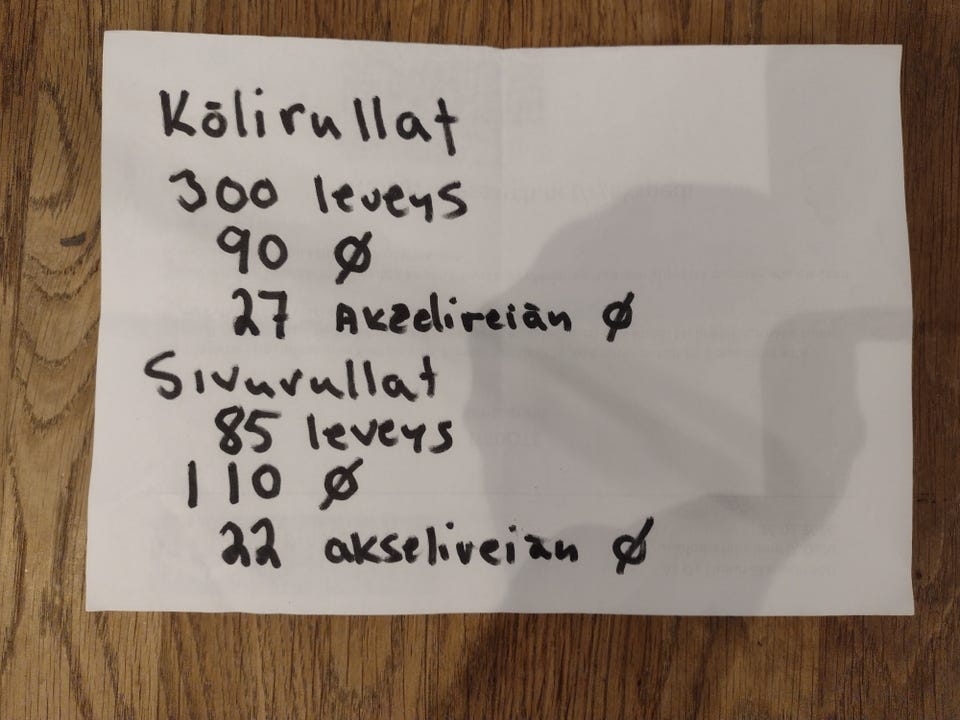 Kölirullat
300 leveys
90 Ø
27 Akselireiän Ø
Sivurullat
85 leveys
110 Ø
22 akselireiän Ø